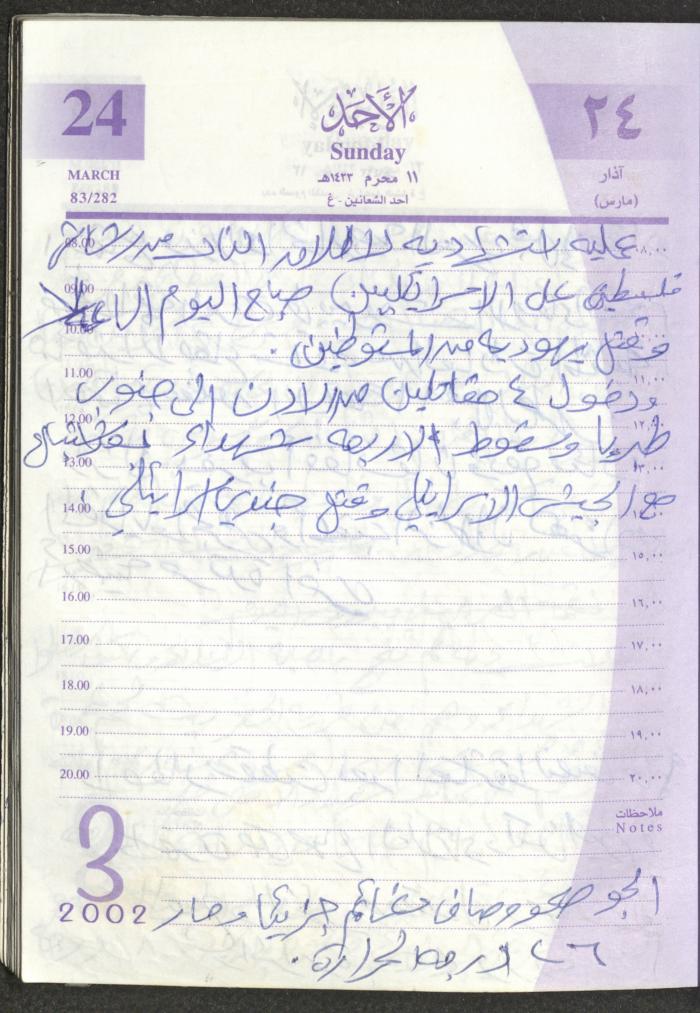 24
الأحد
٢٤
Sunday
MARCH
١١ محرم ١٤٢٣هـ
آذار
83/282
أحد الشعانين - غ
(مارس)
08.00 عمليه استشهاديه لاطلاق النار من شاب ٠٨,٠٠
09.00 فلسطيني على الاسرائيليين صباح اليوم
10.00 وقتل يهوديه من المستوطنين .
11.00 ودخول ٤ مقاتلين من الاردن الى جنوب ١١,٠٠
12.00 طبريا وسقوط الاربعه شهداء ١٢,٠٠
13.00 ١٣,٠٠
14.00 مع الجيش الاسرائيلي وقتل جندي اسرائيلي .
15.00 ١٥,٠٠
16.00 ١٦,٠٠
17.00 ١٧,٠٠
18.00 ١٨,٠٠
19.00 ١٩,٠٠
20.00 ٢٠,٠٠
ملاحظات
Notes
3
2002
الجو صحو وصافي وغائم جزئيا وحار
٢٦ درجه الحراره .